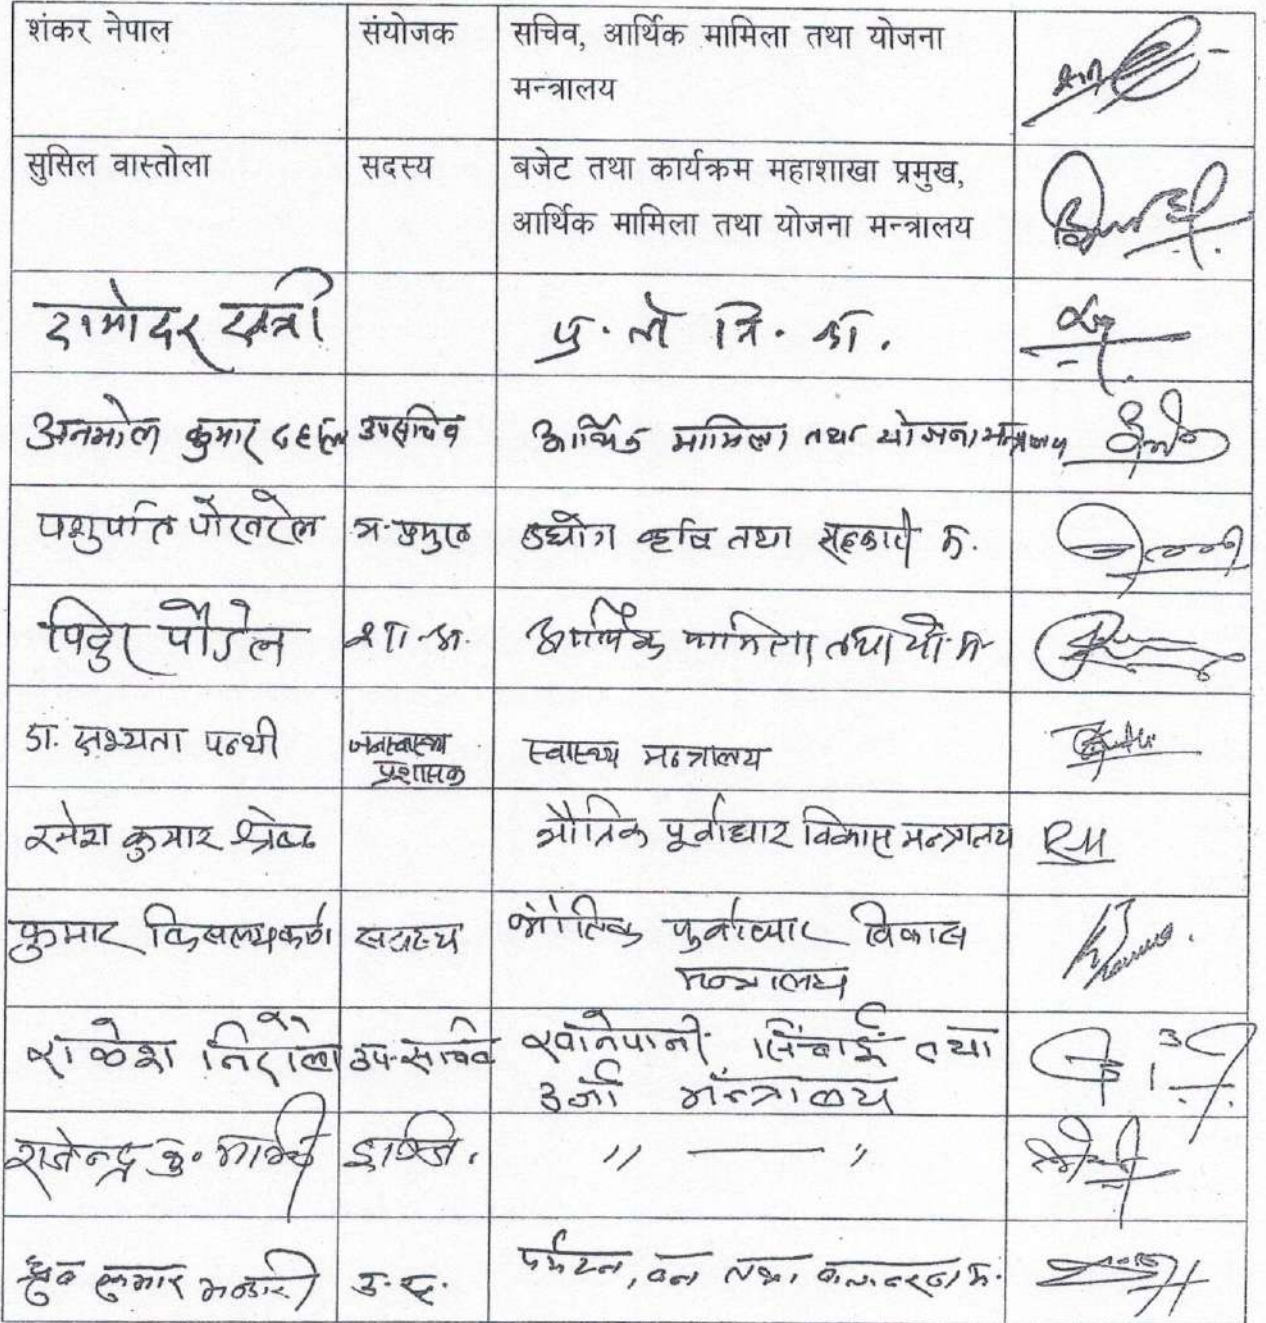 शंकर नेपाल संयोजक सचिव, आर्थिक मामिला तथा योजना
मन्त्रालय
सुसिल वास्तोला सदस्य बजेट तथा कार्यक्रम महाशाखा प्रमुख,
आर्थिक मामिला तथा योजना मन्त्रालय
दामोदर खत्री प्र. ले नि. का.
अनमोल कुमार दाहाल उपसचिव आर्थिक मामिला तथा योजना मन्त्रालय
पशुपति पोखरेल उद्योग कृषि तथा सहकारी म.
विदुर पौडेल शा.अ. आर्थिक मामिला तथा यो.म
डा. सभ्यता पन्थी जनस्वास्थ्य स्वास्थ्य मन्त्रालय
प्रशासक
रमेश कुमार श्रेष्ठ भौतिक पूर्वाधार विकास मन्त्रालय
कुमार किसलयकर्ण सदस्य भौतिक पुर्वाधार विकास
मन्त्रालय
राकेश निरौला उप-सचिव खानेपानी, सिंचाई तथा
उर्जा मंन्त्रालय
राजेन्द्र कु. इञ्जि. " — "
ध्रुव कुमार भण्डारी उ.स. पर्यटन, वन तथा वातावरण म.